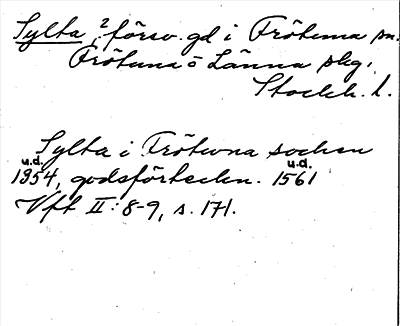 Sylta, 2 försv. gd i Frötuna sn.
Frötuna o Länna skg.
Stockh. l.
Sylta i Frötuna socken
u.d. u.d.
1954, godsförteckn. 1561
Vft II: 8-9, s. 171.